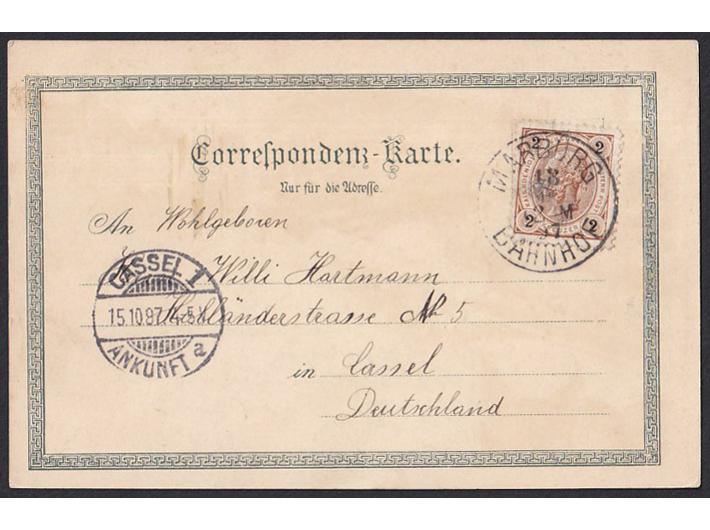 Correspondenz-Karte.
Nur für die Adresse.
2 2
2 2
MARBURG
BAHNHOF
An Wohlgeboren
Willi Hartmann
No 5
in Cassel
Deutschland
CASSEL 1
15.10.97. 4-5
ANKUNFT a